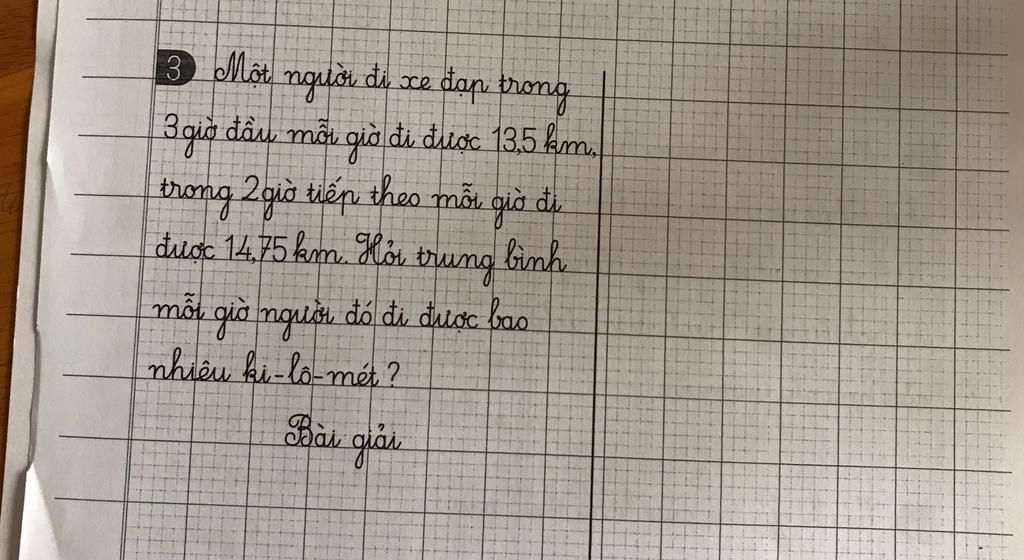 3 Một người đi xe đạp trong
3 giờ đầu mỗi giờ đi được 13,5 km,
trong 2 giờ tiếp theo mỗi giờ đi
được 14,75 km. Hỏi trung bình
mỗi giờ người đó đi được bao
nhiêu ki-lô-mét?
Bài giải